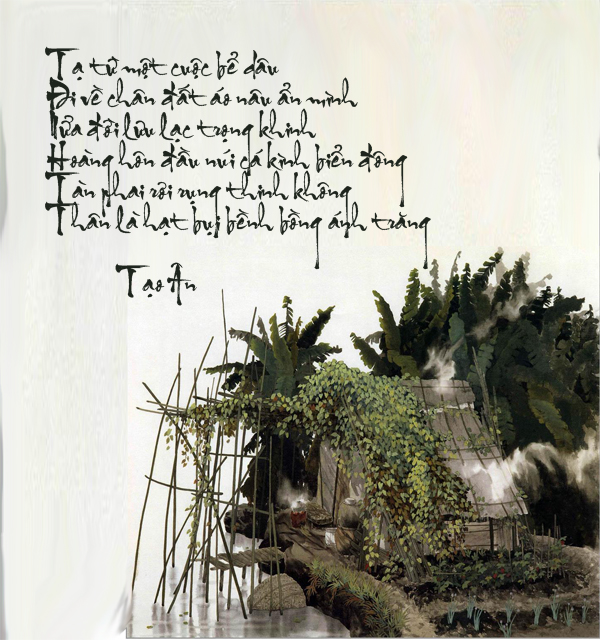 Tạ từ một cuộc bể dâu
Đi về chân đất áo nâu ẩn mình
Nửa đời lưu lạc trọng khinh
Hoàng hôn đầu núi cá kình biển đông
Tàn phai rơi rụng thinh không
Thân là hạt bụi bềnh bồng ánh trăng
Tạo Ân